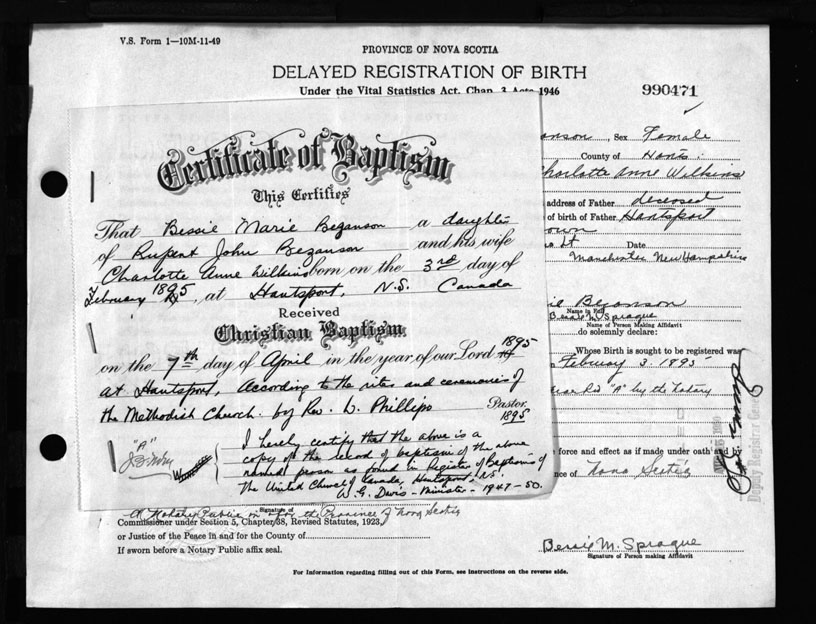 V.S. Form 1—10M-11-49
PROVINCE OF NOVA SCOTIA
DELAYED REGISTRATION OF BIRTH
Under the Vital Statistics Act. Chap. 3 Acts 1946
990471
Certificate of Baptism
This Certifies
That Bessie Marie Bezanson a daughter
of Rupert John Bezanson and his wife
Charlotte Anne Wilkins born on the 3rd day of
February 1895, at Hantsport, N.S. Canada
Received
Christian Baptism
on the 7th day of April in the year of our Lord 1895
at Hantsport, According to the rites and ceremonies of
the Methodist Church. by Rev. L. Phillips Pastor.
1895
"A"
I hereby certify that the above is a
copy of the record of baptism of the above
named person as found in Register of Baptisms of
The United Church of Canada, Hantsport, N.S.
W. G. Davis - Minister - 1947-50.
anson, Sex Female
County of Hants.
Charlotte Anne Wilkins
address of Father deceased
of birth of Father Hantsport
own
Date
Manchester New Hampshire
Bezanson
Name in Full
Bessie M. Sprague
Name of Person Making Affidavit
do solemnly declare:
Whose Birth is sought to be registered was
February 3. 1895
"A" by the Notary
force and effect as if made under oath and by
nce of Nova Scotia
Deputy Registrar Gen
Signature of
A Notary Public in & for the Province of Nova Scotia
Commissioner under Section 5, Chapter 38, Revised Statutes, 1923,
or Justice of the Peace in and for the County of
If sworn before a Notary Public affix seal.
Bessie M. Sprague
Signature of Person making Affidavit
For Information regarding filling out of this Form, see instructions on the reverse side.